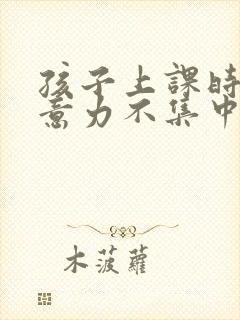 孩子上課時
意力不集中
木菠蘿